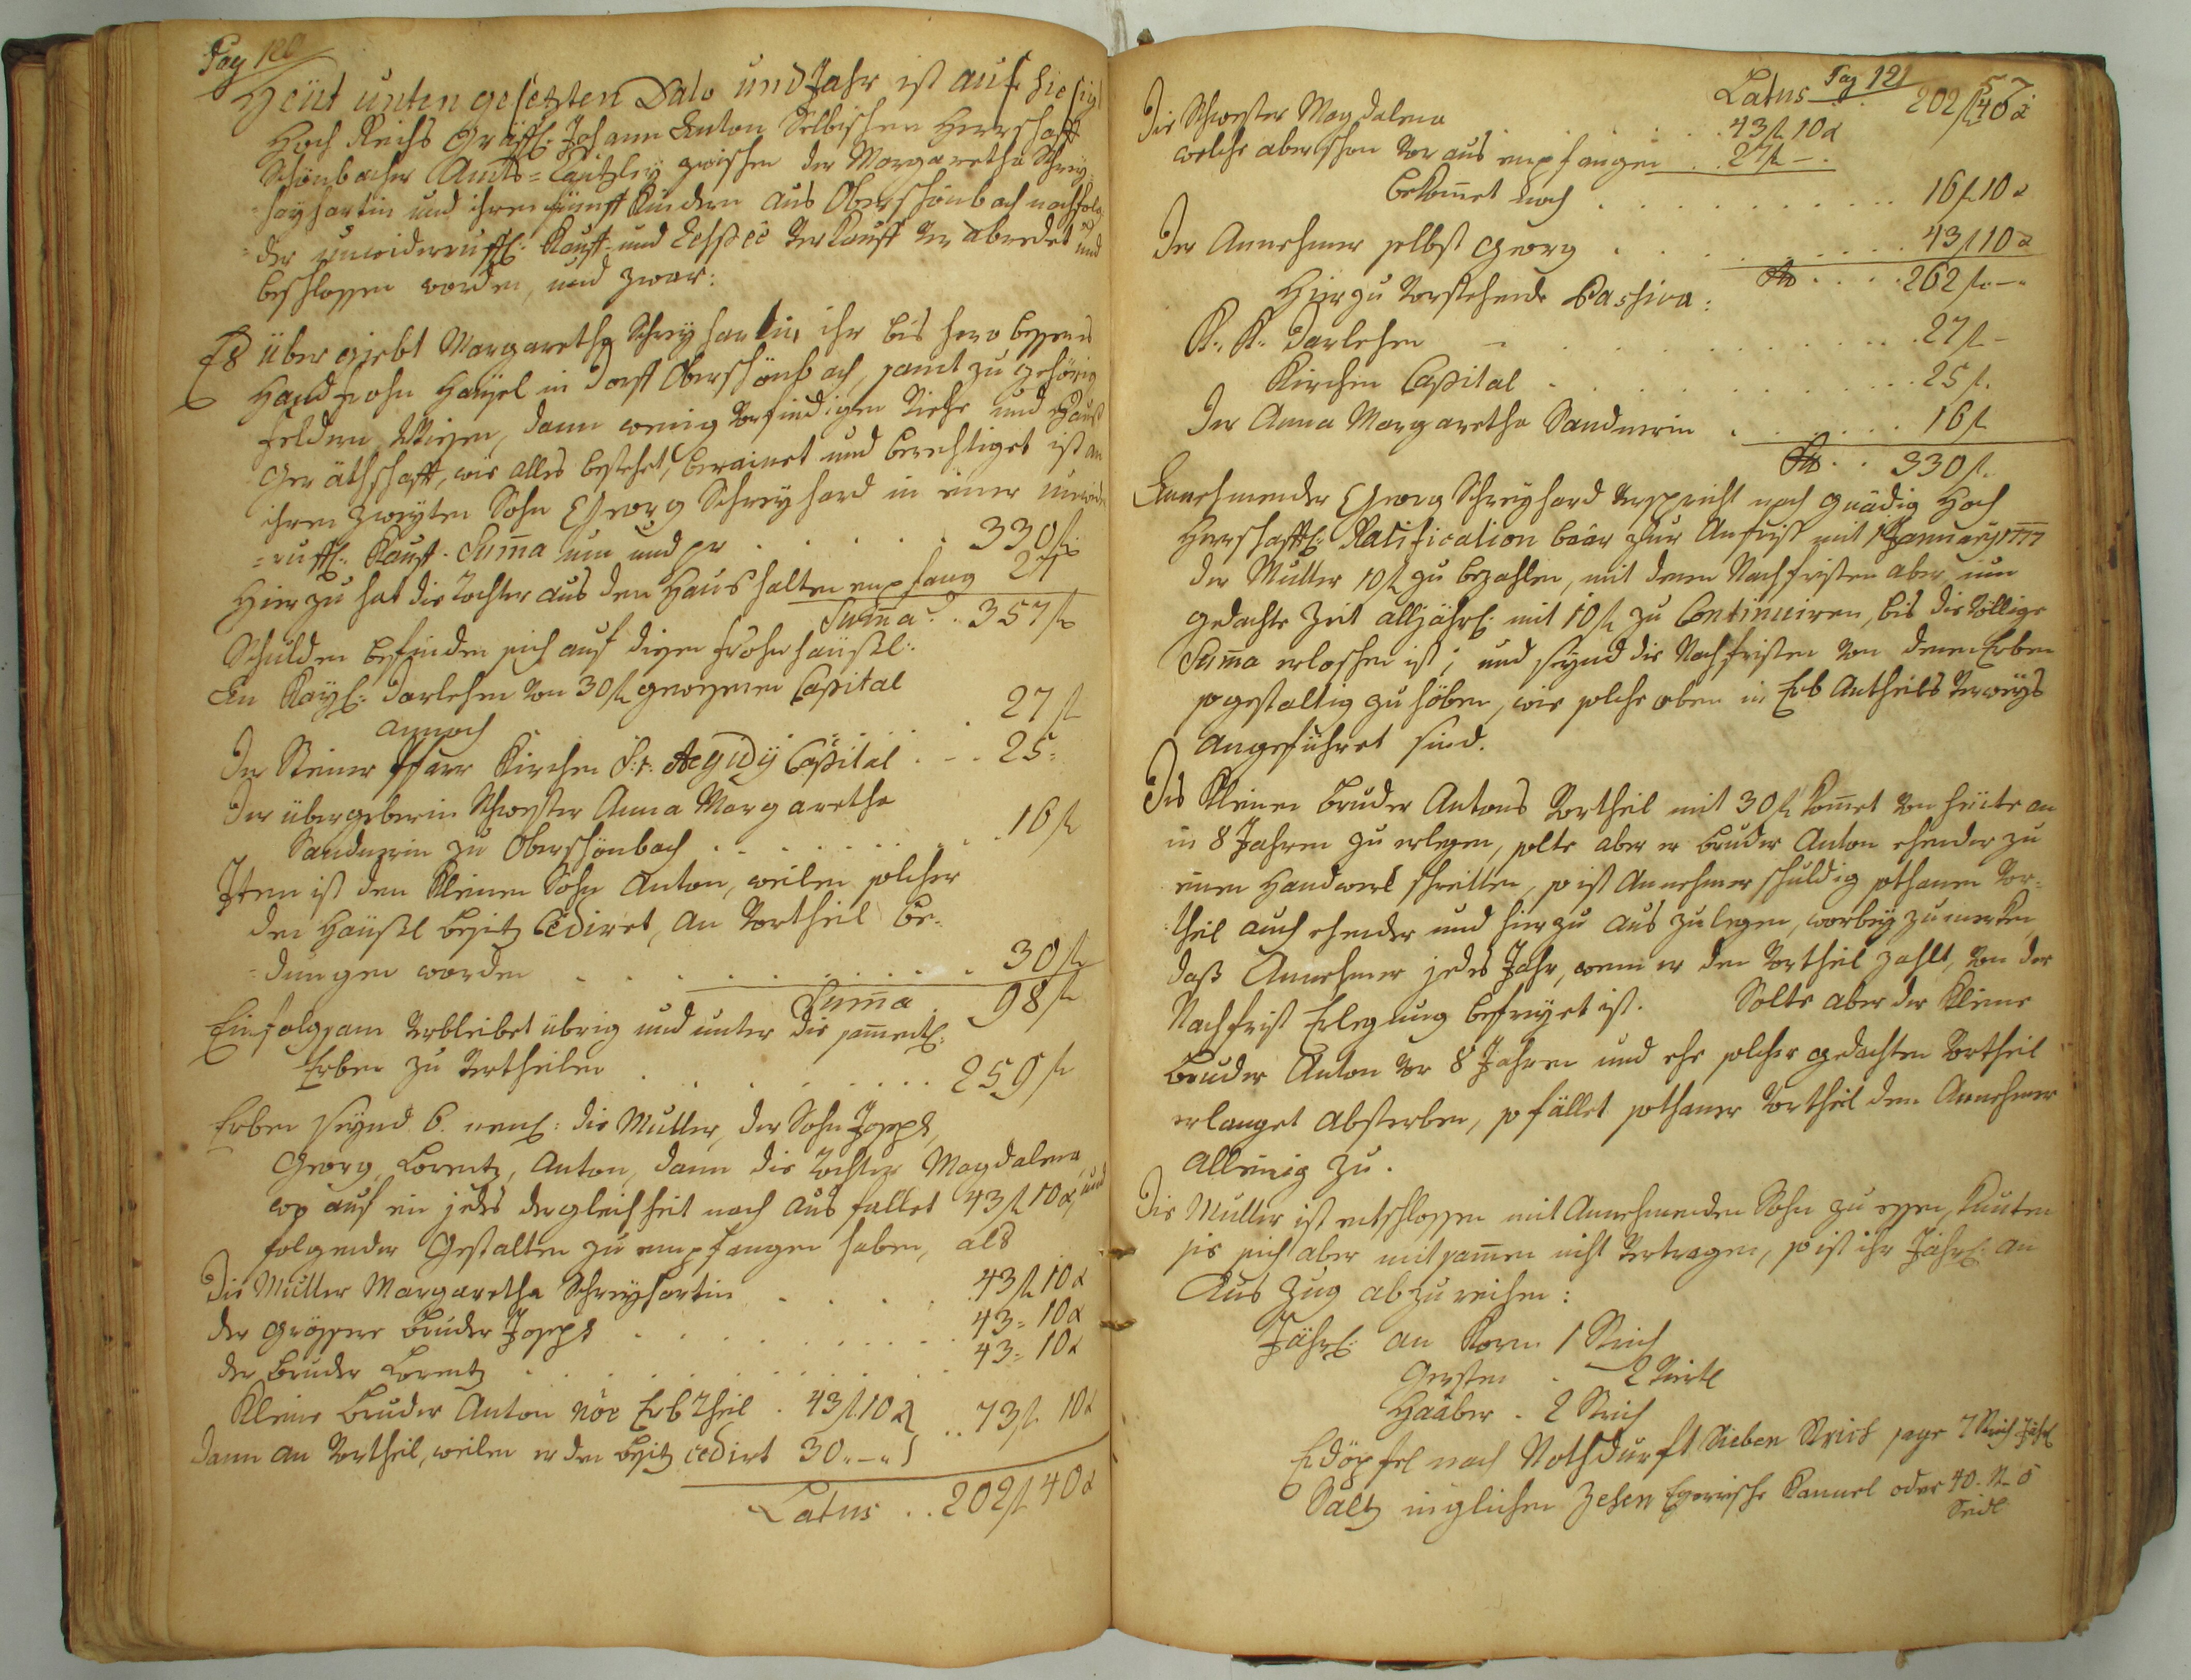 Pag 120
Heüt unten gesetzten Dato und Jahr ist auf hiesig
Hoch Reichs Gräffl: Johann Anton Selbischen Herrschafft
Schönbacher Amts=Cantzley zwischen der Margaretha Schrey
hartin und ihren fünff Kindern aus Oberschönbach nachfolg
der unwiderruffl: Kauff und Verkauff verabredet und
beschlossen worden, und zwar:
Es übergiebt Margaretha Schreyhartin ihr bis hero besessens
Handfrohn Häusel in Dorff Oberschönbach, samt zugehörig
Feldern, Wiesen, dann wenig vorfindigen Viehe und Hauß
Geräthschafft, wie alles bestehet, berainet und berechtiget ist an
ihren zweyten Sohn Georg Schreyhard in einer unwide
=ruffl: Kauff-Summa um und pr . . . . . . 330 fl
Hierzu hat die Tochter aus den Haushalten empfang 27
Summa . . 357 fl
Schulden befinden sich auf diesen Frohnhäußl:
An Kayl: Darlehen von 30 fl gewesenen Capital
annoch . . . . . . 27 fl
Der Steiner Pfarr Kirchen S:t: Aegidy Capital . . . 25=
Der übergeberin Schwester Anna Margaretha
Sandnerin zu Oberschönbach . . . . . . . . 16 fl
Item ist den kleinen Sohn Anton, weilen solcher
den Häußl besitz Cediret, an Vortheil be=
=dungen worden . . . . . . . . . 30 fl
Summa . 98 fl
Einfolgsam verbleibet übrig und unter die samentl:
Erben zu vertheilen . . . . . . . . . 259 fl
Erben seynd 6. neml: die Mutter, der Sohn Joseph,
Georg, Lorentz, Anton, dann die Tochter Magdalena
wo auf ein jedes der gleichheit nach ausfallet 43 fl 10 x, und
folgender Gestalten zu empfangen haben, als
Die Mutter Margaretha Schreyhartin . . . . . 43 fl 10 x
der grössere Bruder Joseph . . . . . . . . . 43= 10 x
der Bruder Lorentz . . . . . . . . . . . 43= 10 x
Kleine Bruder Anton Erbtheil . 43 fl 10 x } . . 73 fl 10 x
dann an Vortheil, weilen er den besitz cedirt 30 „ — „
Latus . . 202 fl 40 x
Pag 121
57
Latus . . . 202 fl 40 x
Die Schwester Magdalena . . . . . . . 43 fl 10 x
welche aber schon voraus empfangen . . . 27 fl — .
bekommet noch . . . . . . . . . . . 16 fl 10 x
Der Annehmer selbst Georg . . . . . . . . . . 43 fl 10 x
. . . . 262 fl — „
Hierzu vorstehende Passiva:
K: K: Darlehen . . . . . . . . . . . . 27 fl —
Kirchen Capital . . . . . . . . . . . . 25 fl.
Der Anna Margaretha Sandnerin . . . . . . . 16 fl
. . 330 fl.
Annehmender Georg Schreyhard verspricht nach gnädig Hoch
Herrschafftl: Ratification baar zur Anfrist mit 1 January 1777
der Mutter 10 fl zu bezahlen, mit denen Nachfristen aber um
gedachte Zeit alljährl: mit 10 fl zu Continuiren, bis die völlige
Summa erloschen ist; und seynd die Nachfristen von denen Erben
so gestaltig zu höben, wie solche oben in Erb Antheils
angeführet sind.
Des Kleinen Bruder Antons Vortheil mit 30 fl kommet von heüte an
in 8 Jahren zu erlegen, solte aber er Bruder Anton ehender zu
einen Handwerk schreitten, so ist Annehmer schuldig sothanen Vor=
theil auch ehender und hierzu auszulegen, worbey zu merken,
daß Annehmer jedes Jahr, wenn er den Vortheil zahlt, von der
Nachfrist Erlegung befreyet ist. Solte aber der Kleine
Bruder Anton vor 8 Jahren und ehe solcher gedachten Vortheil
erlanget absterben, so fället sothaner Vortheil dem Annehmer
alleinig zu.
Die Mutter ist entschlossen mit Annehmenden Sohn zu essen, kunten
sie sich aber mitsammen nicht vertragen, so ist ihr jährl: an
Auszug abzureichen:
Jährl: an Korn 1 Strich
Gersten . 2 Viertl
Haaber . 2 Strich
Erdöpfel nach Nothdurft Sieben Strich sage 7 Strich jährl
Saltz inglichen Zehen Egerische Kannel oder 40
Seidl